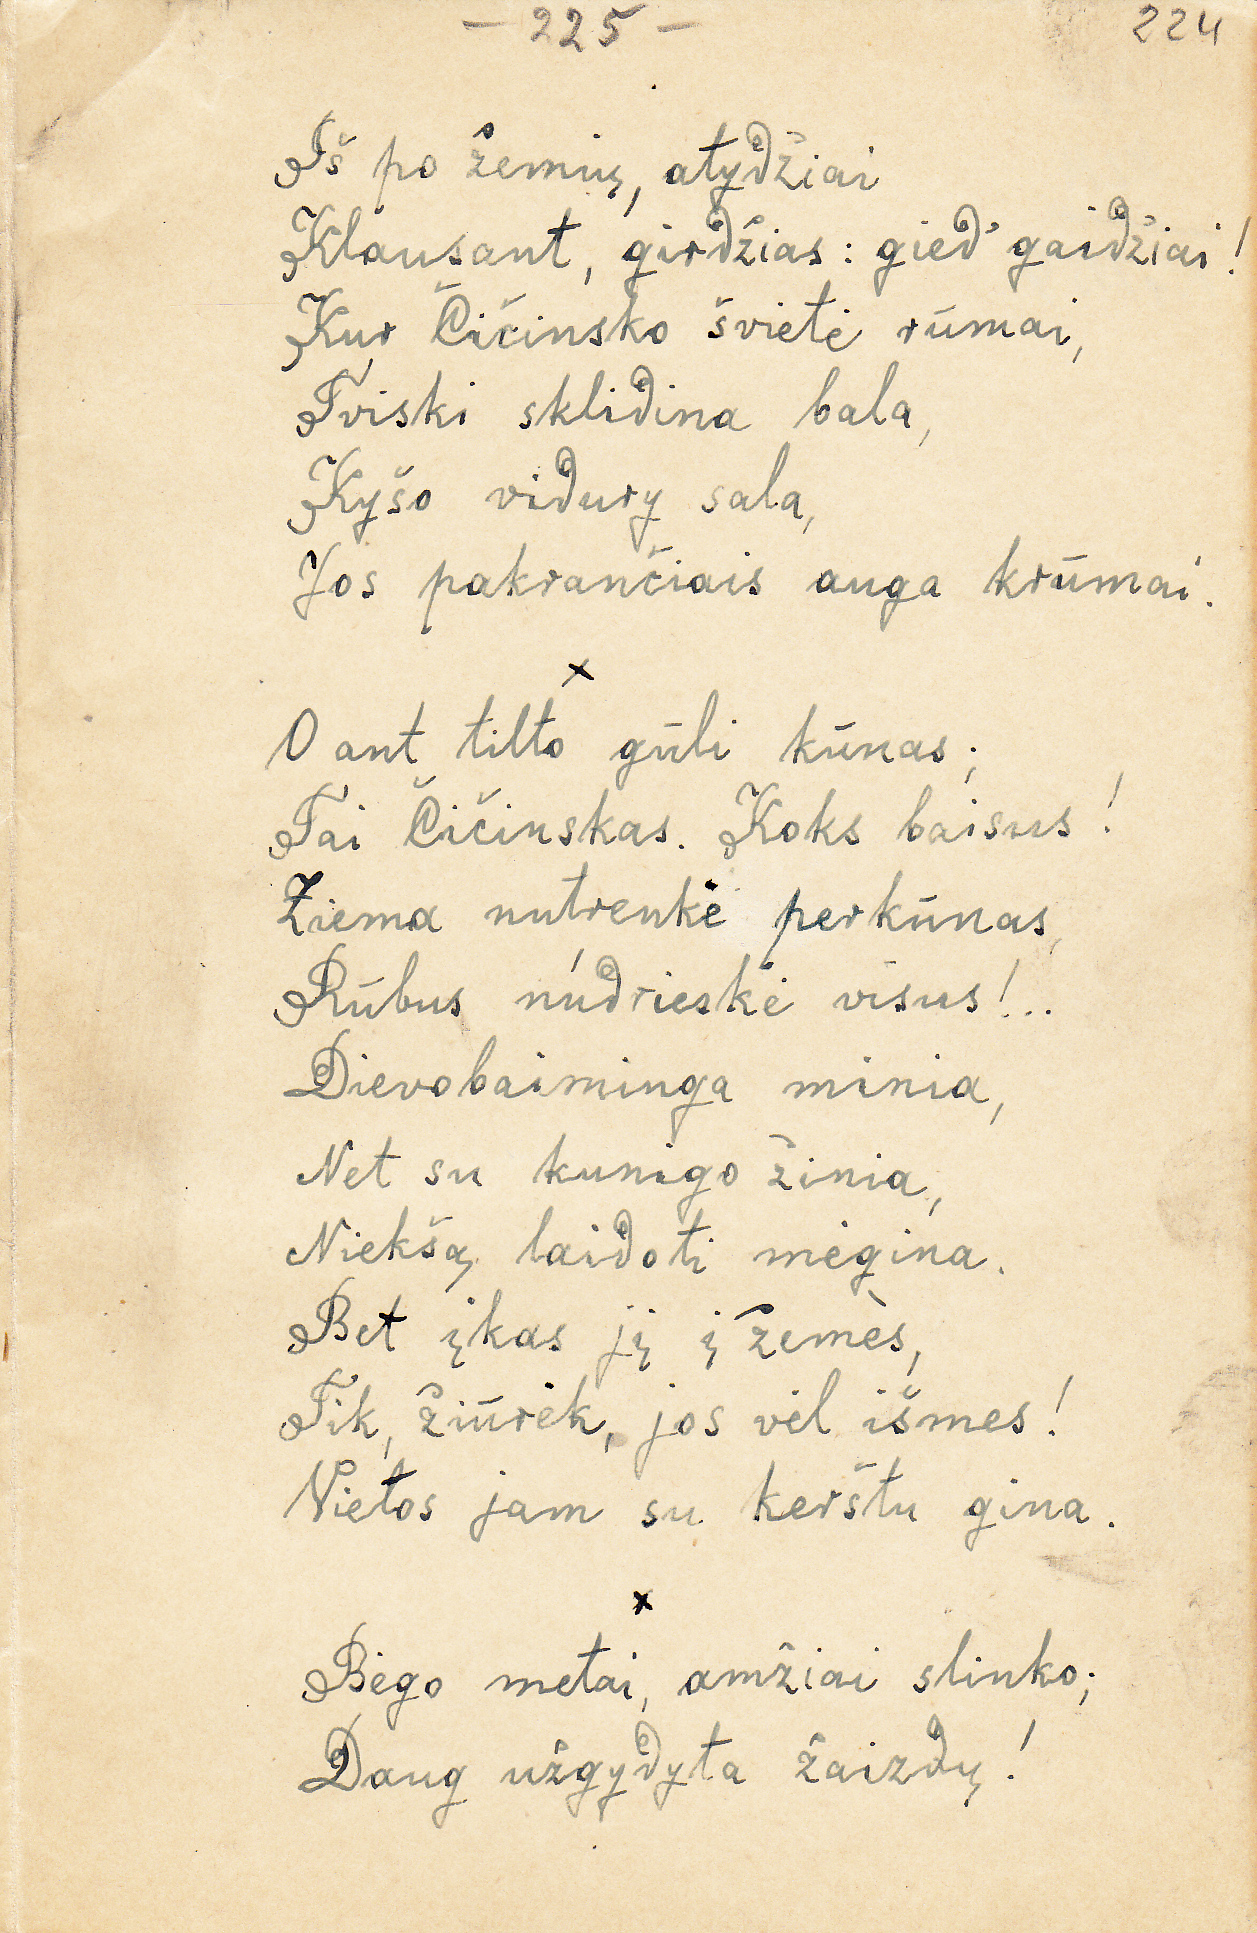 — 225 — 224
Iš po žemių, atydžiai
Klausant, girdžias: gied' gaidžiai!
Kur Čičinsko švietė rūmai,
Tviski sklidina bala,
Kyšo vidury sala,
Jos pakrančiais auga krūmai.
×
O ant tilto gūli kūnas;
Tai Čičinskas. Koks baisus!
Žiema nutrenkė perkūnas,
Rūbus núdrieskė visus!...
Dievobaiminga minia,
Net su kunigo žinia,
Niekšą laidoti mėgina.
Bet įkas jį į žemės,
Tik, žiūrėk, jos vėl išmes!
Vietos jam su kerštu gina.
×
Bėgo metai, amžiai slinko;
Daug užgydyta žaizdų!